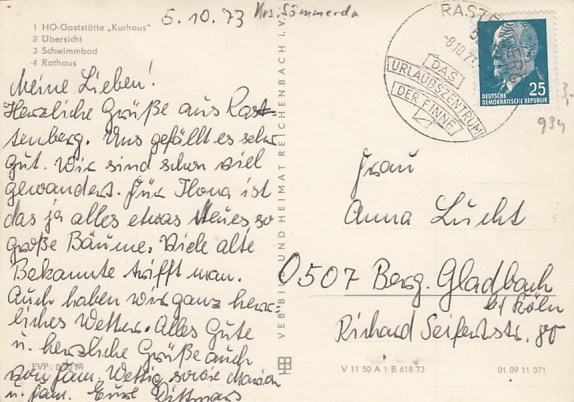 5.10.73 Krs. Sömmerda
1 HO-Gaststätte „Kurhaus“
2 Übersicht
3 Schwimmbad
4 Rathaus
Meine Lieben!
Herzliche Grüße aus Rast-
tenberg. Uns gefällt es sehr
gut. Wir sind schon viel
gewandert. Für Ilona ist
das ja alles etwas Neues, so
große Bäume. Viele alte
Bekannte trifft man.
Auch haben wir ganz herr-
liches Wetter. Alles Gute
u. herzliche Grüße auch
von fam. Wettig sowie Marion
u. fam. Dittmar
EVP:
VEB BILD UND HEIMAT REICHENBACH I. V.
RAST
-8.10.73
DAS
URLAUBSZENTRUM
DER FINNE
DEUTSCHE
DEMOKRATISCHE REPUBLIK
25
3,-
934
Frau
Anna Lucht
0507 Berg. Gladbach
b/ Köln
Richard Seifertstr. 80
V 11 50 A 1 B 618 73
01 09 11 071